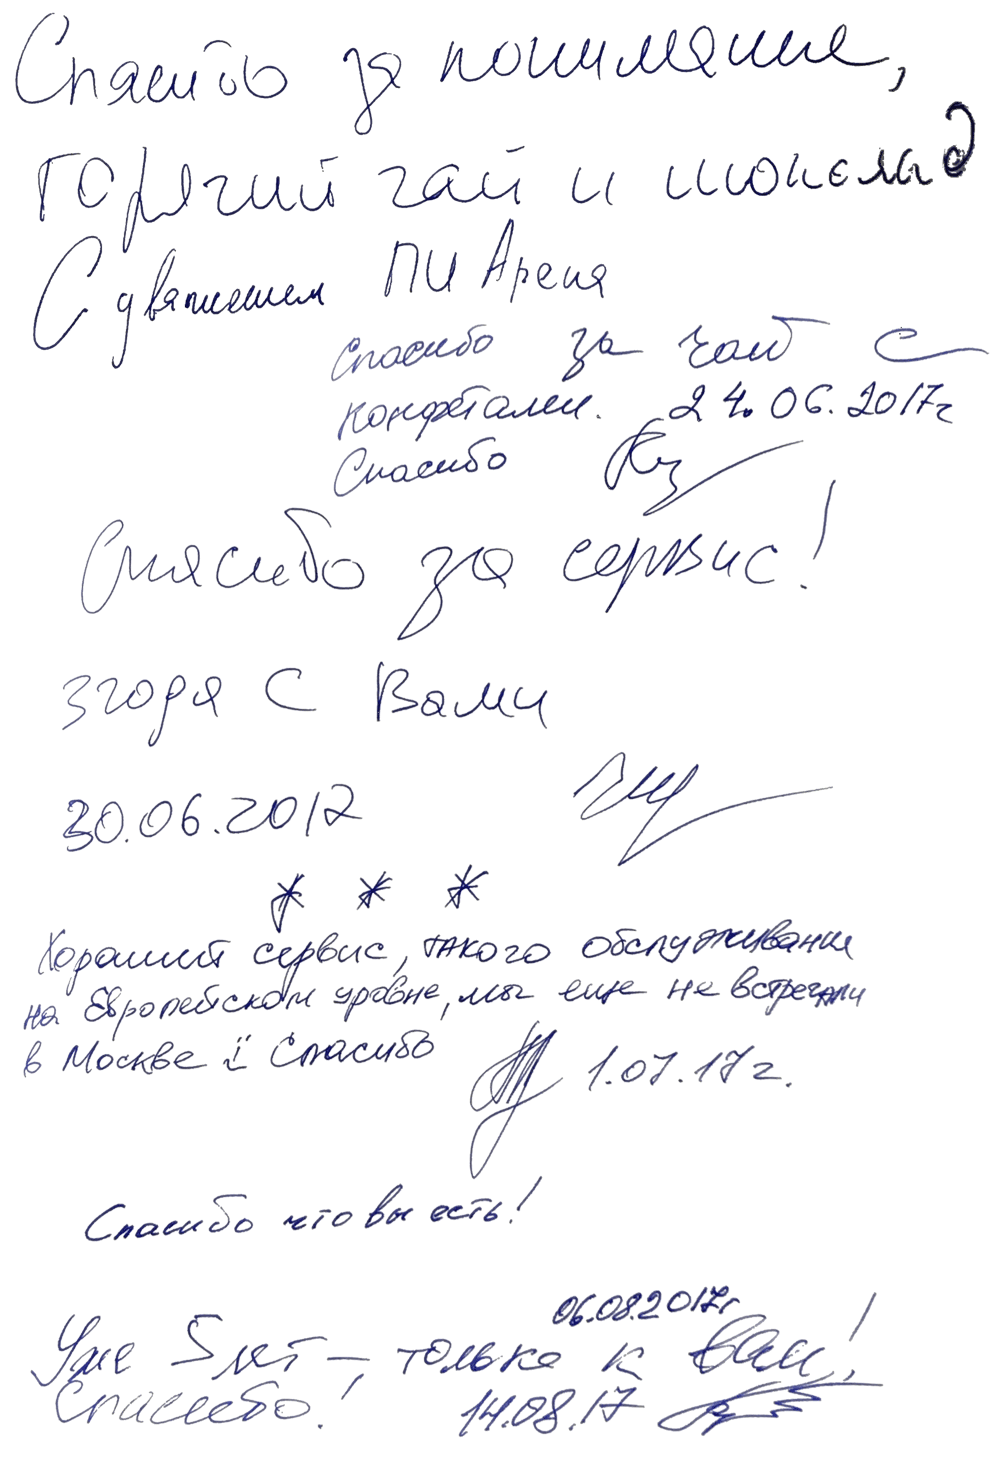 Спасибо за понимание,
горячий чай и шоколад
С уважением ПИ Арена
Спасибо за чай с
конфетами. 24.06.2017г
Спасибо
Спасибо за сервис!
3 года с Вами
30.06.2017
* * *
Хороший сервис, такого обслуживания
на Европейском уровне, мы еще не встречали
в Москве! Спасибо
1.07.17г.
Спасибо что вы есть!
06.08.2017г
Уже 5 лет –, только к вам!
Спасибо! 14.08.17